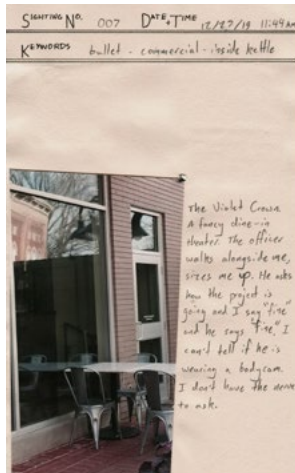 SIGHTING NO. 007 DATE+TIME 12/27/19 11:49AM
KEYWORDS bullet - commercial - inside kettle
The Violet Crown
A fancy dine-in
theater. The officer
walks alongside me,
sizes me up. He asks
how the project is
going and I say "fine"
and he says "fine." I
can't tell if he is
wearing a bodycam.
I don't have the nerve
to ask.